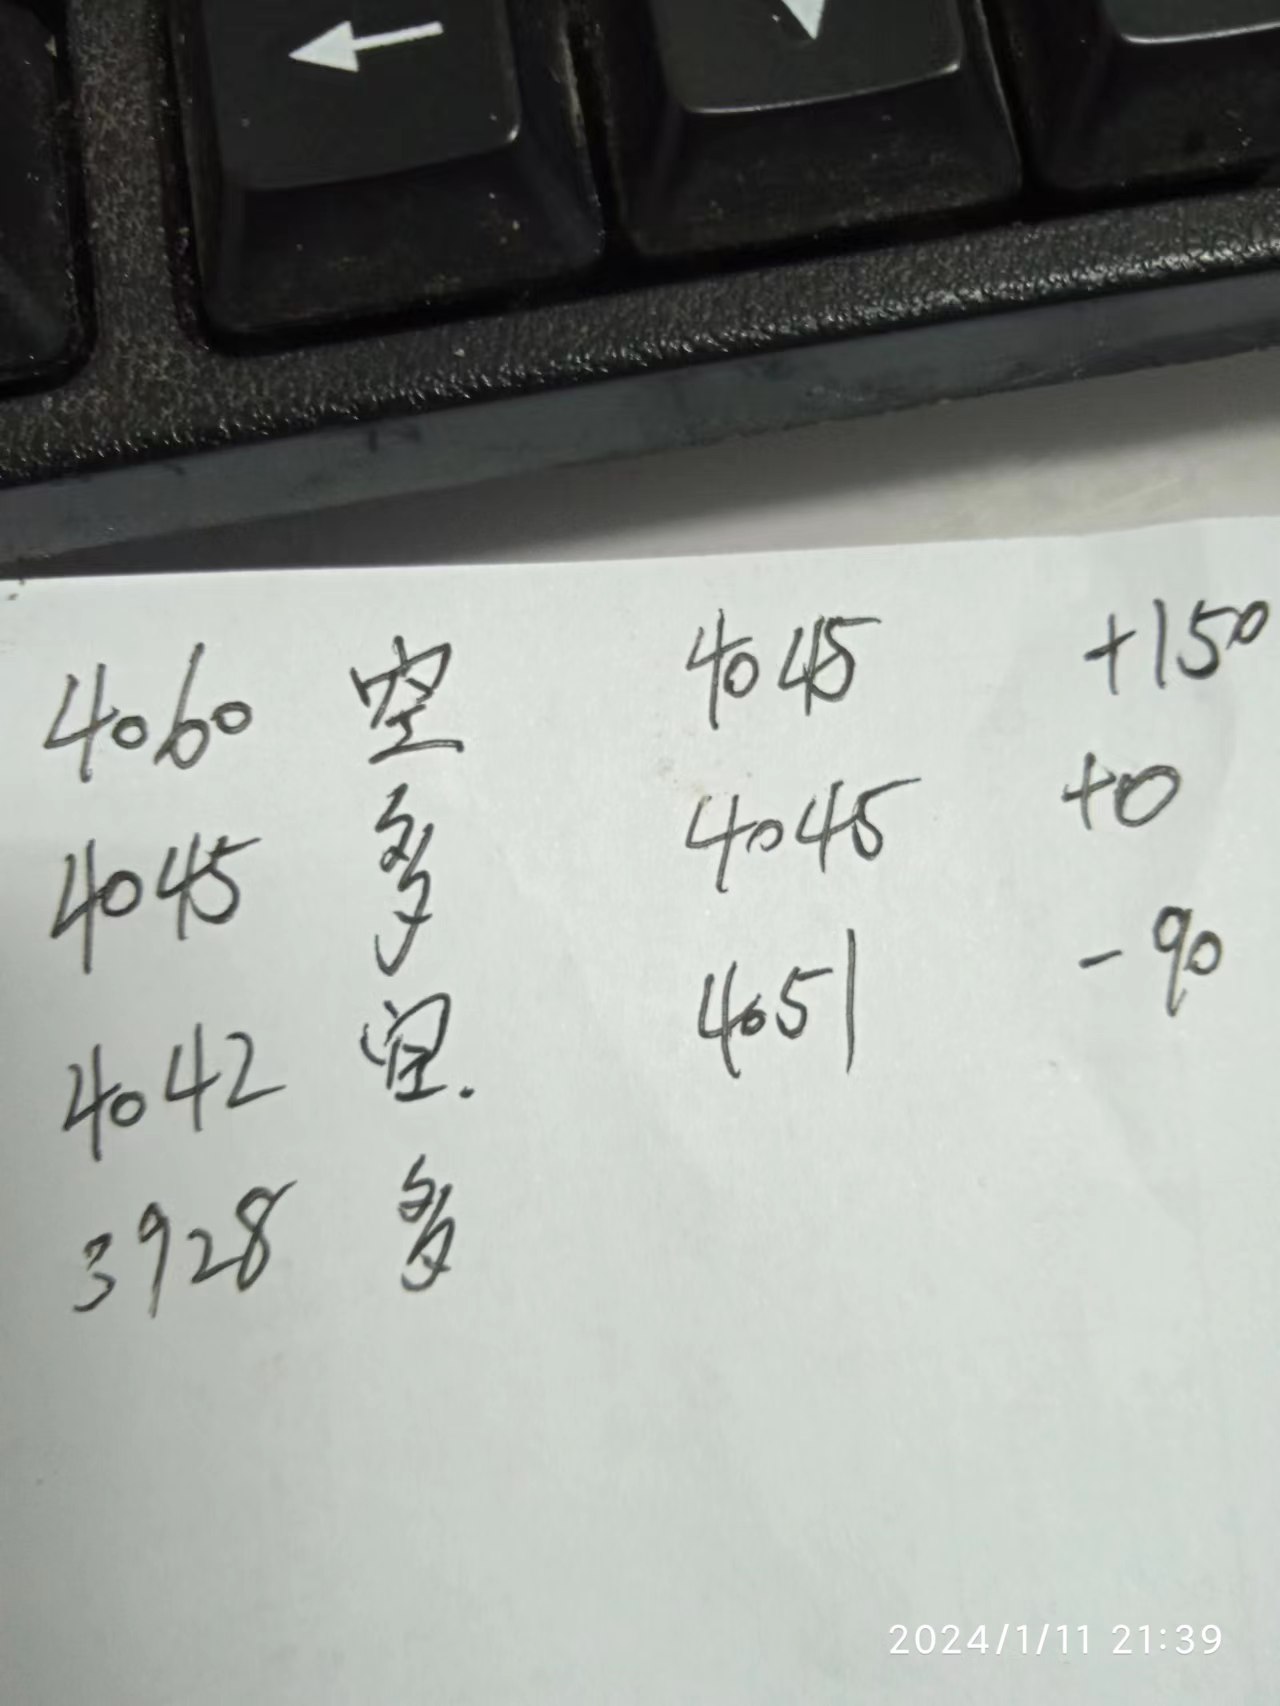 4060 空 4045 +150
4045 多 4045 +0
4042 空. 4051 -90
3928 多
2024/1/11 21:39